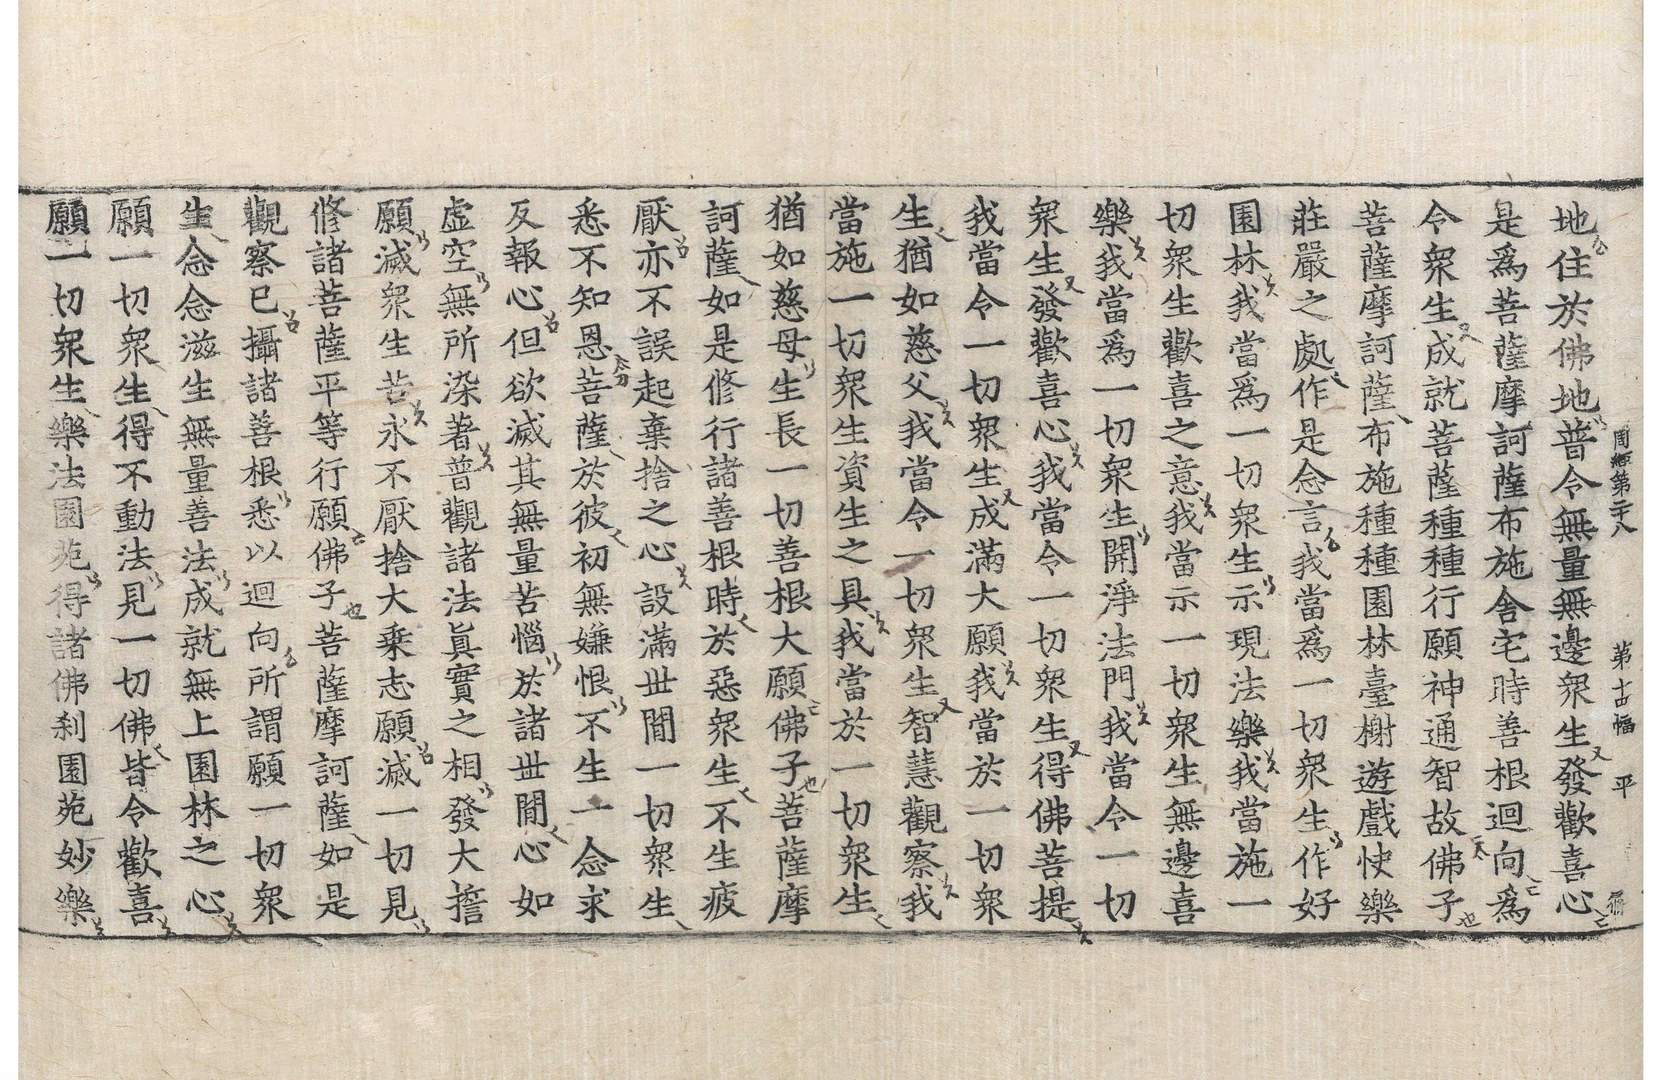 周經第二十八 第十古幅 平
地住於佛地普令無量無邊衆生發歡喜心
是爲菩薩摩訶薩布施舍宅時善根迴向爲
令衆生成就菩薩種種行願神通智故佛子
菩薩摩訶薩布施種種園林臺榭遊戲快樂
莊嚴之處作是念言我當爲一切衆生作好
園林我當爲一切衆生示現法樂我當施一
切衆生歡喜之意我當示一切衆生無邊喜
樂我當爲一切衆生開淨法門我當令一切
衆生發歡喜心我當令一切衆生得佛菩提
我當令一切衆生成滿大願我當於一切衆
生猶如慈父我當令一切衆生智慧觀察我
當施一切衆生資生之具我當於一切衆生
猶如慈母生長一切善根大願佛子菩薩摩
訶薩如是修行諸善根時於惡衆生不生疲
厭亦不誤起棄捨之心設滿世間一切衆生
悉不知恩菩薩於彼初無嫌恨不生一念求
反報心但欲滅其無量苦惱於諸世間心如
虛空無所染著普觀諸法眞實之相發大誓
願滅衆生苦永不厭捨大乘志願滅一切見
修諸菩薩平等行願佛子菩薩摩訶薩如是
觀察已攝諸善根悉以迴向所謂願一切衆
生念念滋生無量善法成就無上園林之心
願一切衆生得不動法見一切佛皆令歡喜
願一切衆生樂法園苑得諸佛刹園苑妙樂